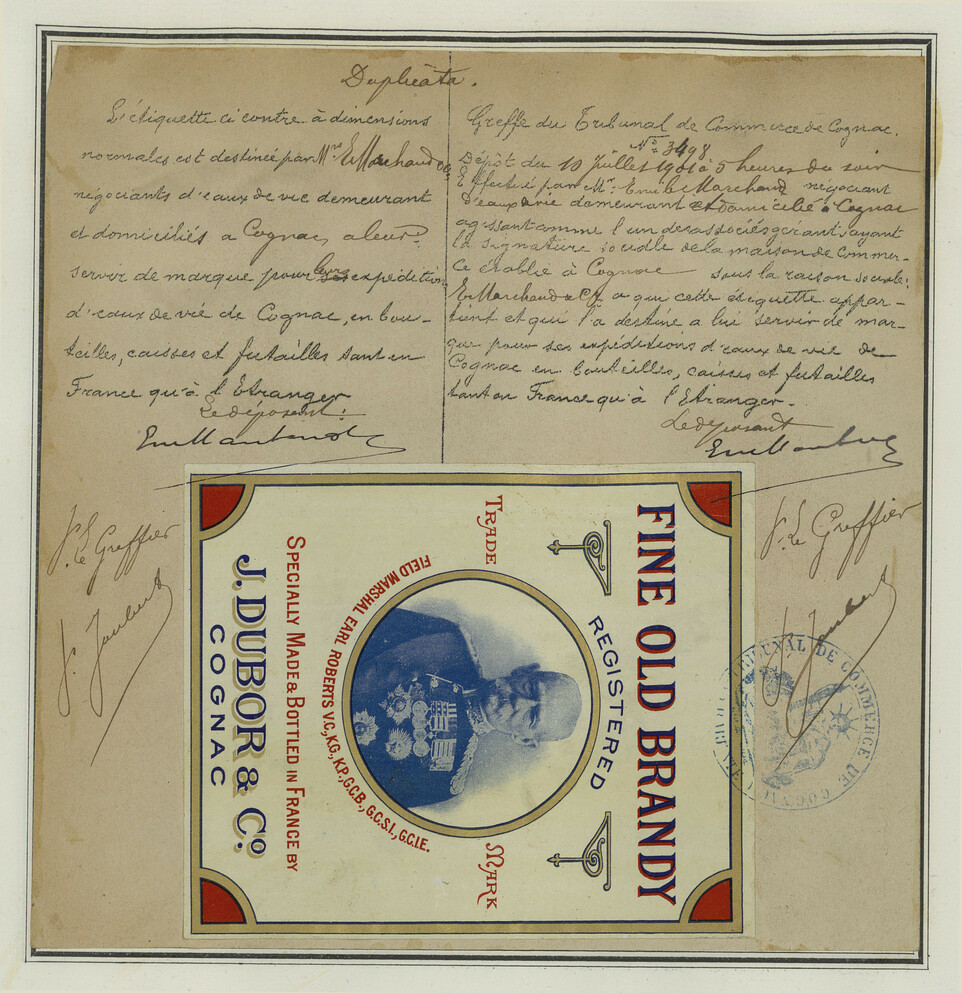 Duplicata.
L'étiquette ci contre à dimensions
normales est destinée par Mrs E. Marchand & Cie
négociants d'eaux de vie demeurant
et domiciliés a Cognac, a leur
servir de marque pour leurs expeditions
d'eaux de vie de Cognac, en bou-
teilles, caisses et futailles tant en
France qu'à l'Etranger
Le déposant:
Em Marchand
Pr Le Greffier
Greffe du Tribunal de Commerce de Cognac.
No: 3498
Dépôt du 10 Juillet 1901 à 5 heures du soir
Effectué par Mr: Emile Marchand négociant
d'eaux de vie demeurant et domicilié à Cognac
agissant comme l'un des associés gérant, ayant
la signature sociale de la maison de commer-
ce établie à Cognac sous la raison sociale:
E. Marchand & Cie a qui cette étiquette appar-
tient et qui l'a destiné a lui servir de mar-
que pour ses expeditions d'eaux de vie de
Cognac en bouteilles, caisses et futailles
tant en France qu'à l'Etranger.
Le déposant
Em Marchand
Pr Le Greffier
FINE OLD BRANDY
REGISTERED
TRADE MARK
FIELD MARSHAL EARL ROBERTS V.C., K.G., K.P., G.C.B., G.C.S.I., G.C.I.E.
SPECIALLY MADE & BOTTLED IN FRANCE BY
J. DUBOR & Co.
COGNAC
TRIBUNAL DE COMMERCE DE COGNAC